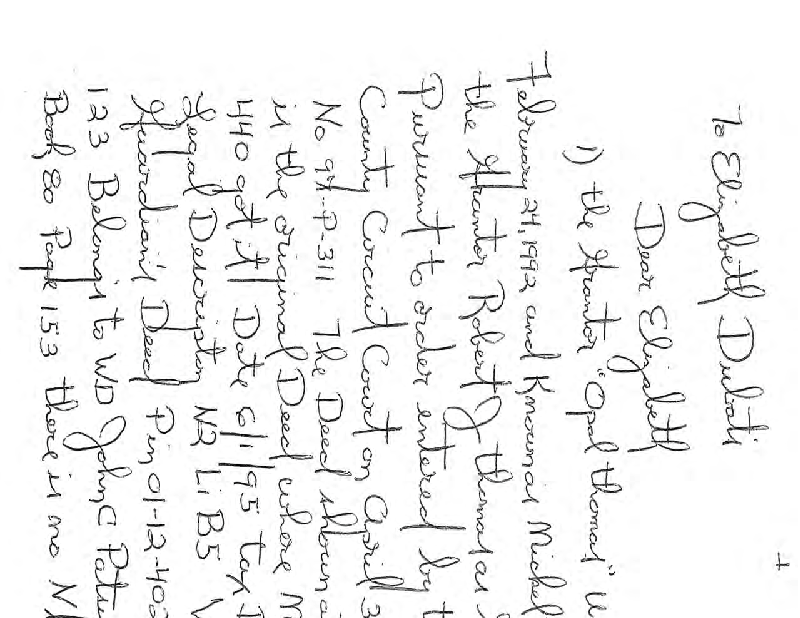 To Elizabeth Dubati
Dear Elizabeth
1) the Grantor "Opal thomas"
February 24, 1992 and Known as Michel
the Grantor Robert J thomas as
Pursuant to order entered by
County Circuit Court on April 3
No 94-P-311 The Deed shown
is the original Deed where
440 got it Date 6/1/95 tax
Legal Description N2 Li B5
Guardian's Deed Pin 01-12-402
123 Belongs to WD John C
Book 80 Page 153 there is no